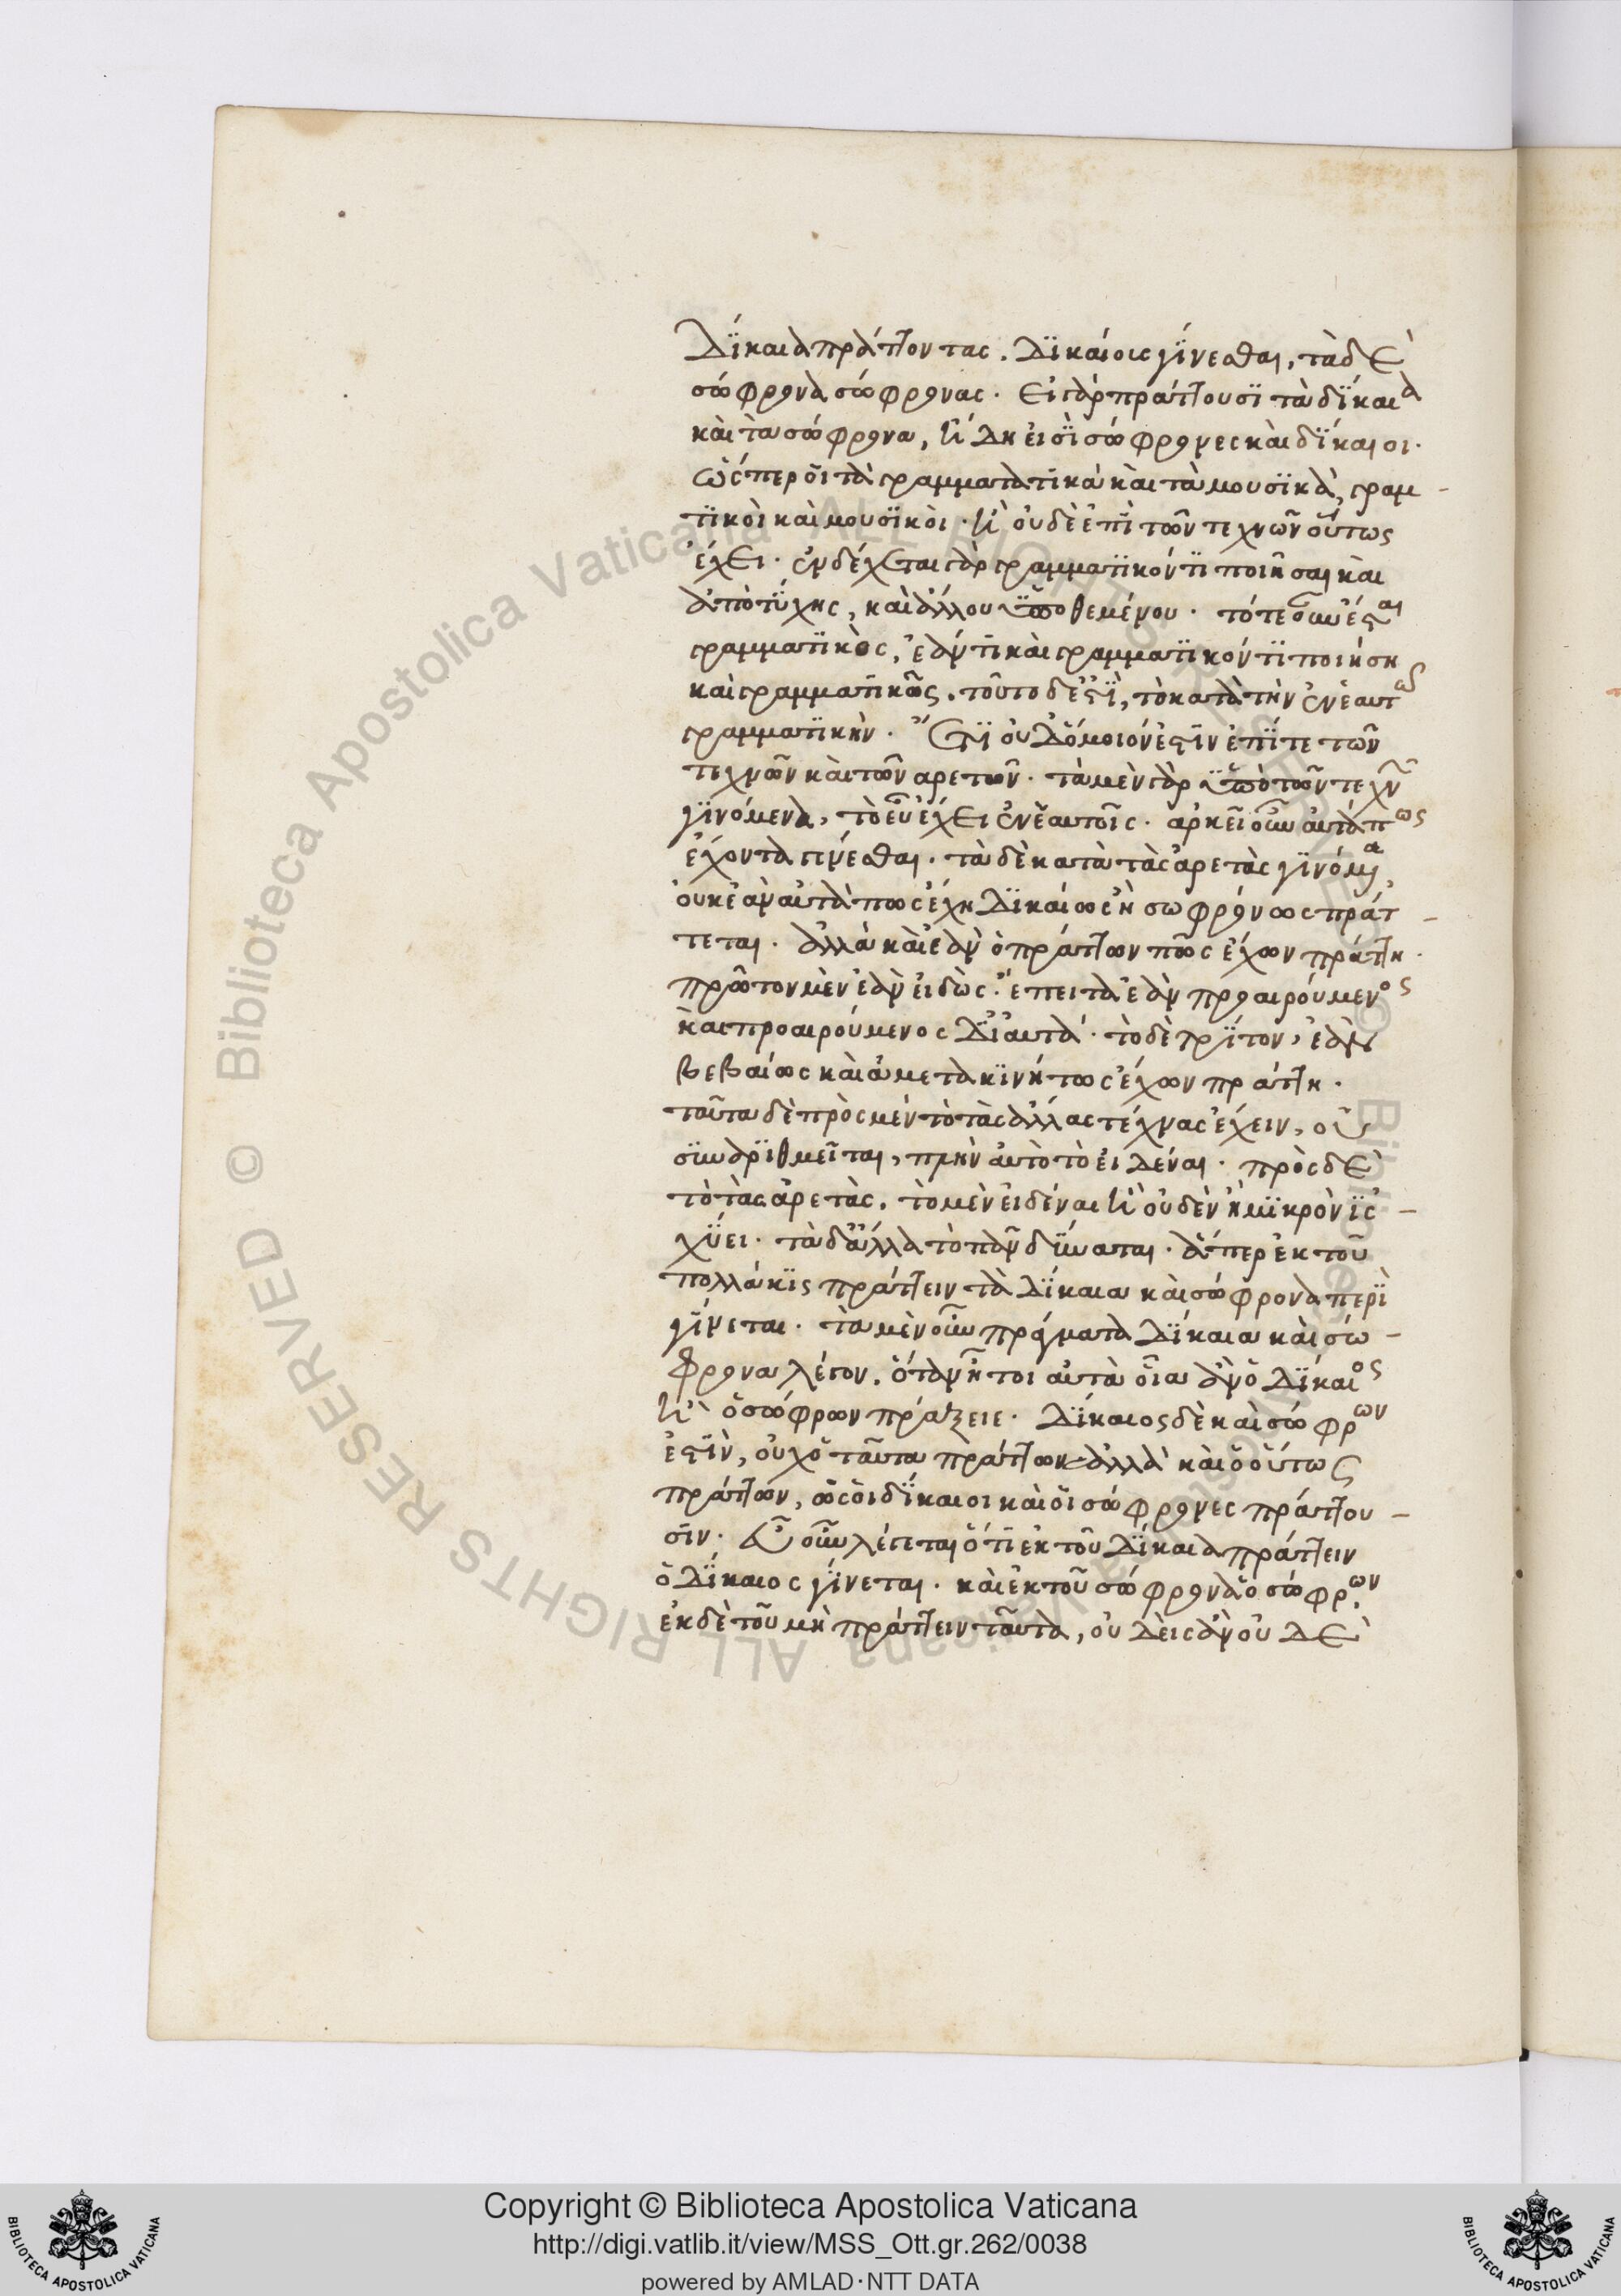 δίκαια πράττοντας. δικαίοις γίνεσθαι, τὰ δὲ
σώφρονα σώφρονας. εἰ γὰρ πράττουσι τὰ δίκαια
καὶ τὰ σώφρονα, ἤδη εἰσὶ σώφρονες καὶ δίκαιοι.
ὥσπερ οἱ τὰ γραμματατικὰ καὶ τὰ μουσικὰ, γραμ-
τικοὶ καὶ μουσικοὶ. ἢ οὐδὲ ἐπὶ τῶν τεχνῶν οὕτως
ἔχει. ἐνδέχεται γὰρ γραμματικόν τι ποιῆσαι καὶ
ἀπὸ τύχης, καὶ ἄλλου ὑποθεμένου. τότε οὖν ἔσται
γραμματικὸς, ἐάν τι καὶ γραμματικόν τι ποιήση
καὶ γραμματικῶς. τοῦτο δέ ἐστι, τὸ κατὰ τὴν ἐν ἑαυτῶ
γραμματικήν. ἔτι οὐδ' ὅμοιόν ἐστιν ἐπί τε τῶν
τεχνῶν καὶ τῶν αρετῶν. τὰ μὲν γὰρ ὑπὸ τῶν τεχνῶν
γινόμενα, τὸ εὖ ἔχει ἐν ἑαυτοῖς. αρκεῖ οὖν αὐτά πως
ἔχοντα γινέσθαι. τὰ δὲ κατὰ τὰς ἀρετὰς γινόμενα,
οὐκ ἐὰν αὐτά πως ἔχη δικαίως ἢ σωφρόνως πράτ-
τεται. ἀλλὰ καὶ ἐὰν ὁ πράττων πῶς ἔχων πράττη.
πρῶτον μὲν ἐὰν εἰδὼς. ἔπειτα ἐὰν προαιρούμενος
καὶ προαιρούμενος δι' αυτά. τὸ δὲ τρίτον, ἐὰν
βεβαίως καὶ ἀμετακινήτως ἔχων πράττη.
ταῦτα δὲ πρὸς μὲν τὸ τὰς ἄλλας τέχνας ἔχειν, οὐ
συναριθμεῖται, πλὴν αὐτὸ τὸ εἰδέναι. πρὸς δὲ
τὸ τὰς ἀρετὰς, τὸ μὲν εἰδέναι ἢ οὐδὲν ἢ μικρὸν ἰσ-
χύει. τὰ δ' ἄλλα τὸ πᾶν δύναται. ἅπερ ἐκ τοῦ
πολλάκις πράττειν τὰ δίκαια καὶ σώφρονα περι
γίνεται. τὰ μὲν οὖν πράγματα δίκαια καὶ σώ-
φρονα λέγον. ὅταν ἦ τοι αὐτὰ οἷα ἂν ὁ δίκαιος
ἢ ὁ σώφρων πράξειε. δίκαιος δὲ καὶ σώφρων
ἐστὶν, οὐχ ὁ ταῦτα πράττων ἀλλὰ καὶ ὁ οὕτως
πράττων, ὡς οἱ δίκαιοι καὶ οἱ σώφρονες πράττου-
σιν. εὖ οὖν λέγεται ὅτι ἐκ τοῦ δίκαια πράττειν
ὁ δίκαιος γίνεται. καὶ ἐκ τοῦ σώφρονα ὁ σώφρων.
ἐκ δὲ τοῦ μὴ πράττειν ταῦτα, οὐδεὶς ἂν οὐδὲ